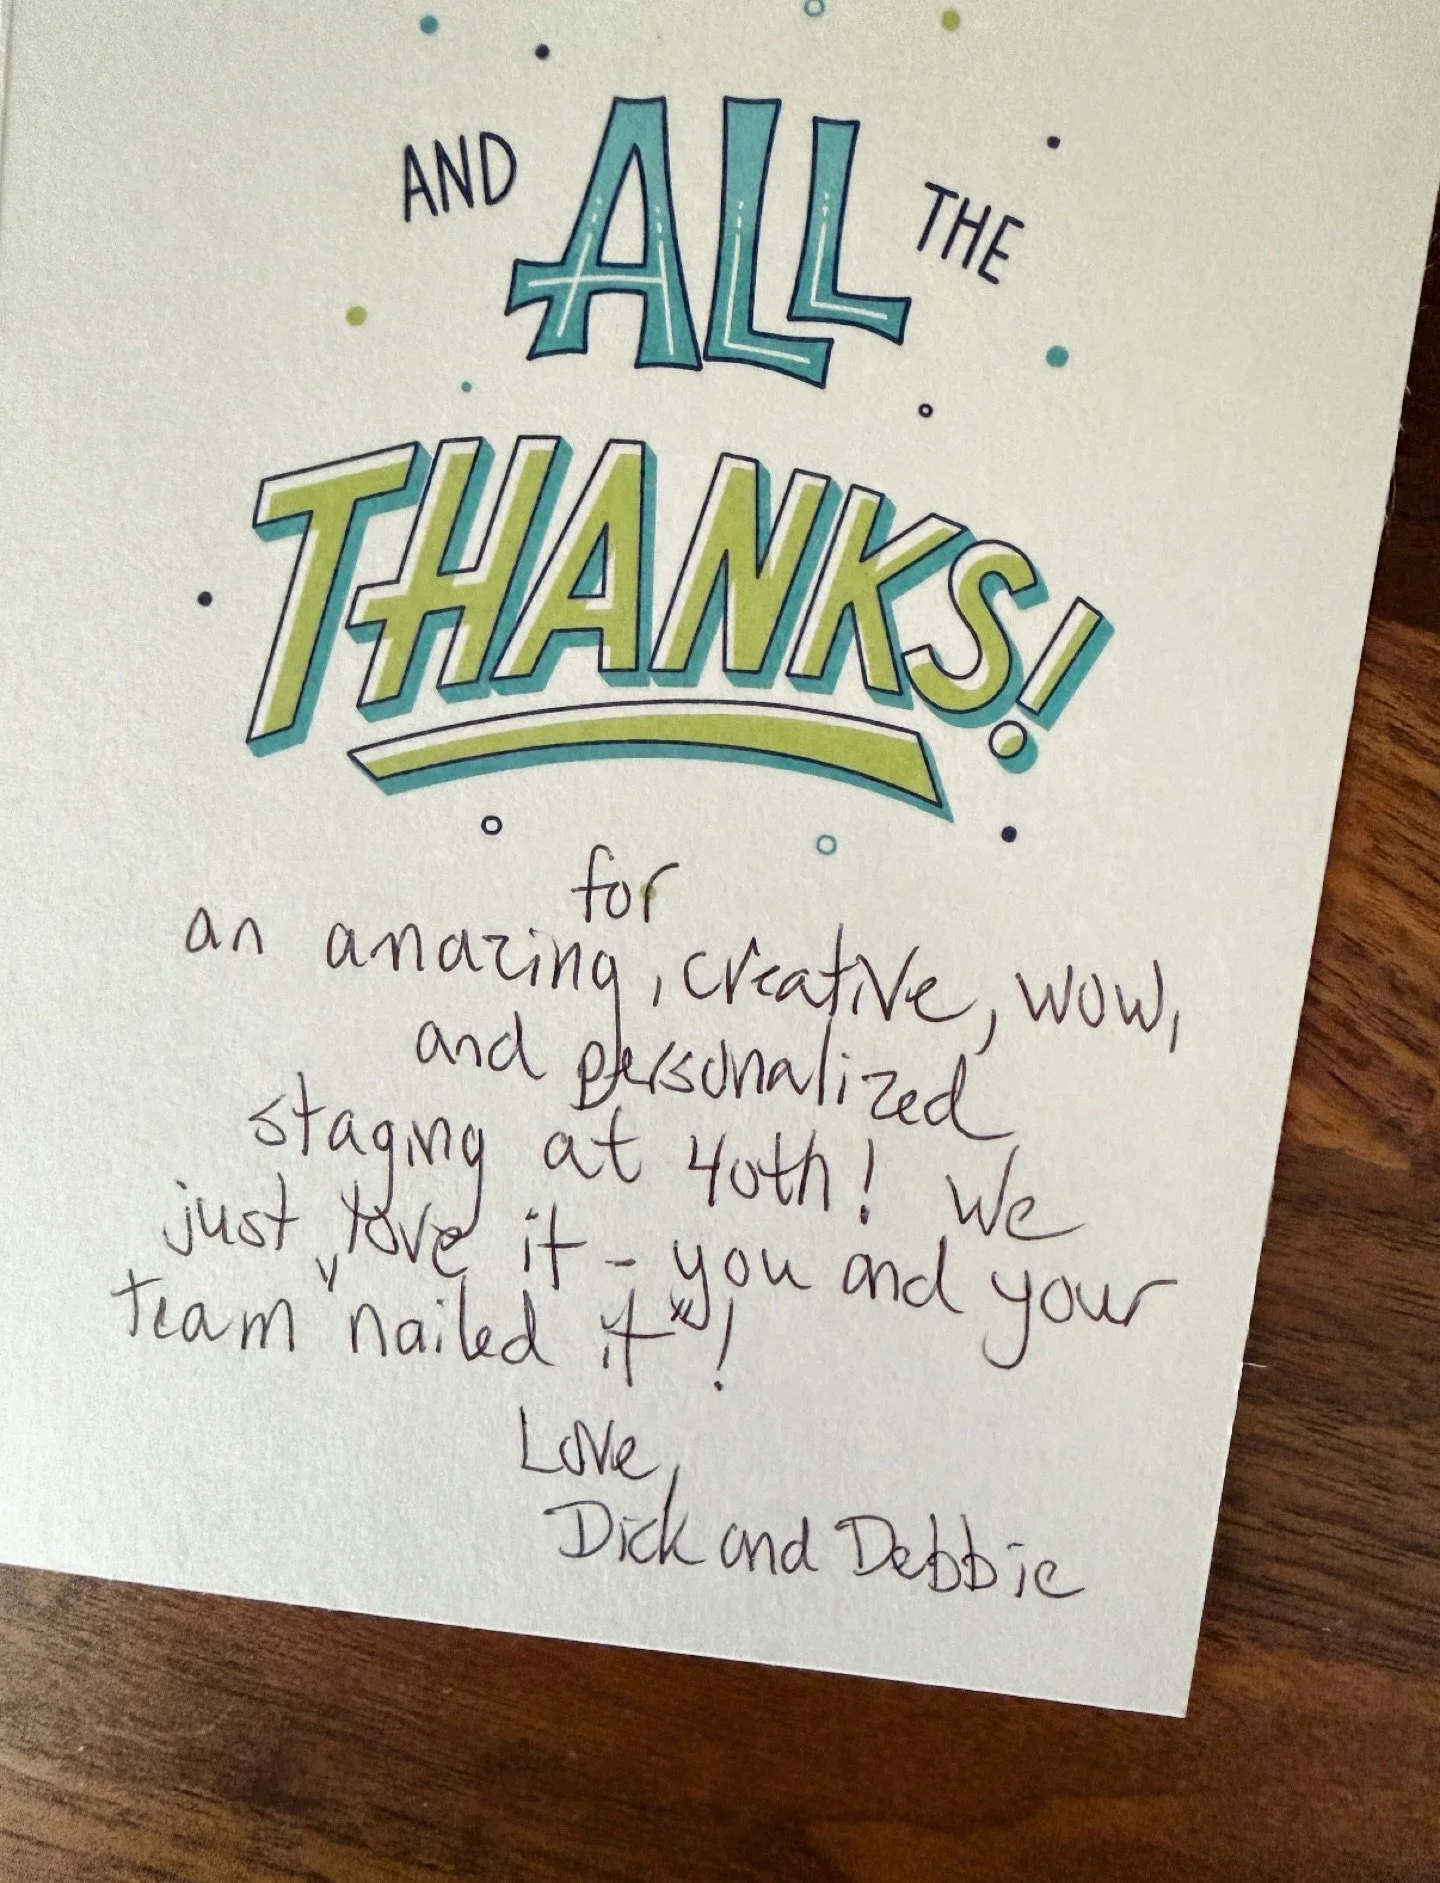 AND ALL THE
THANKS!
for
an amazing, creative, wow,
and personalized
staging at 40th! We
just love it - you and your
team "nailed it"!
Love,
Dick and Debbie